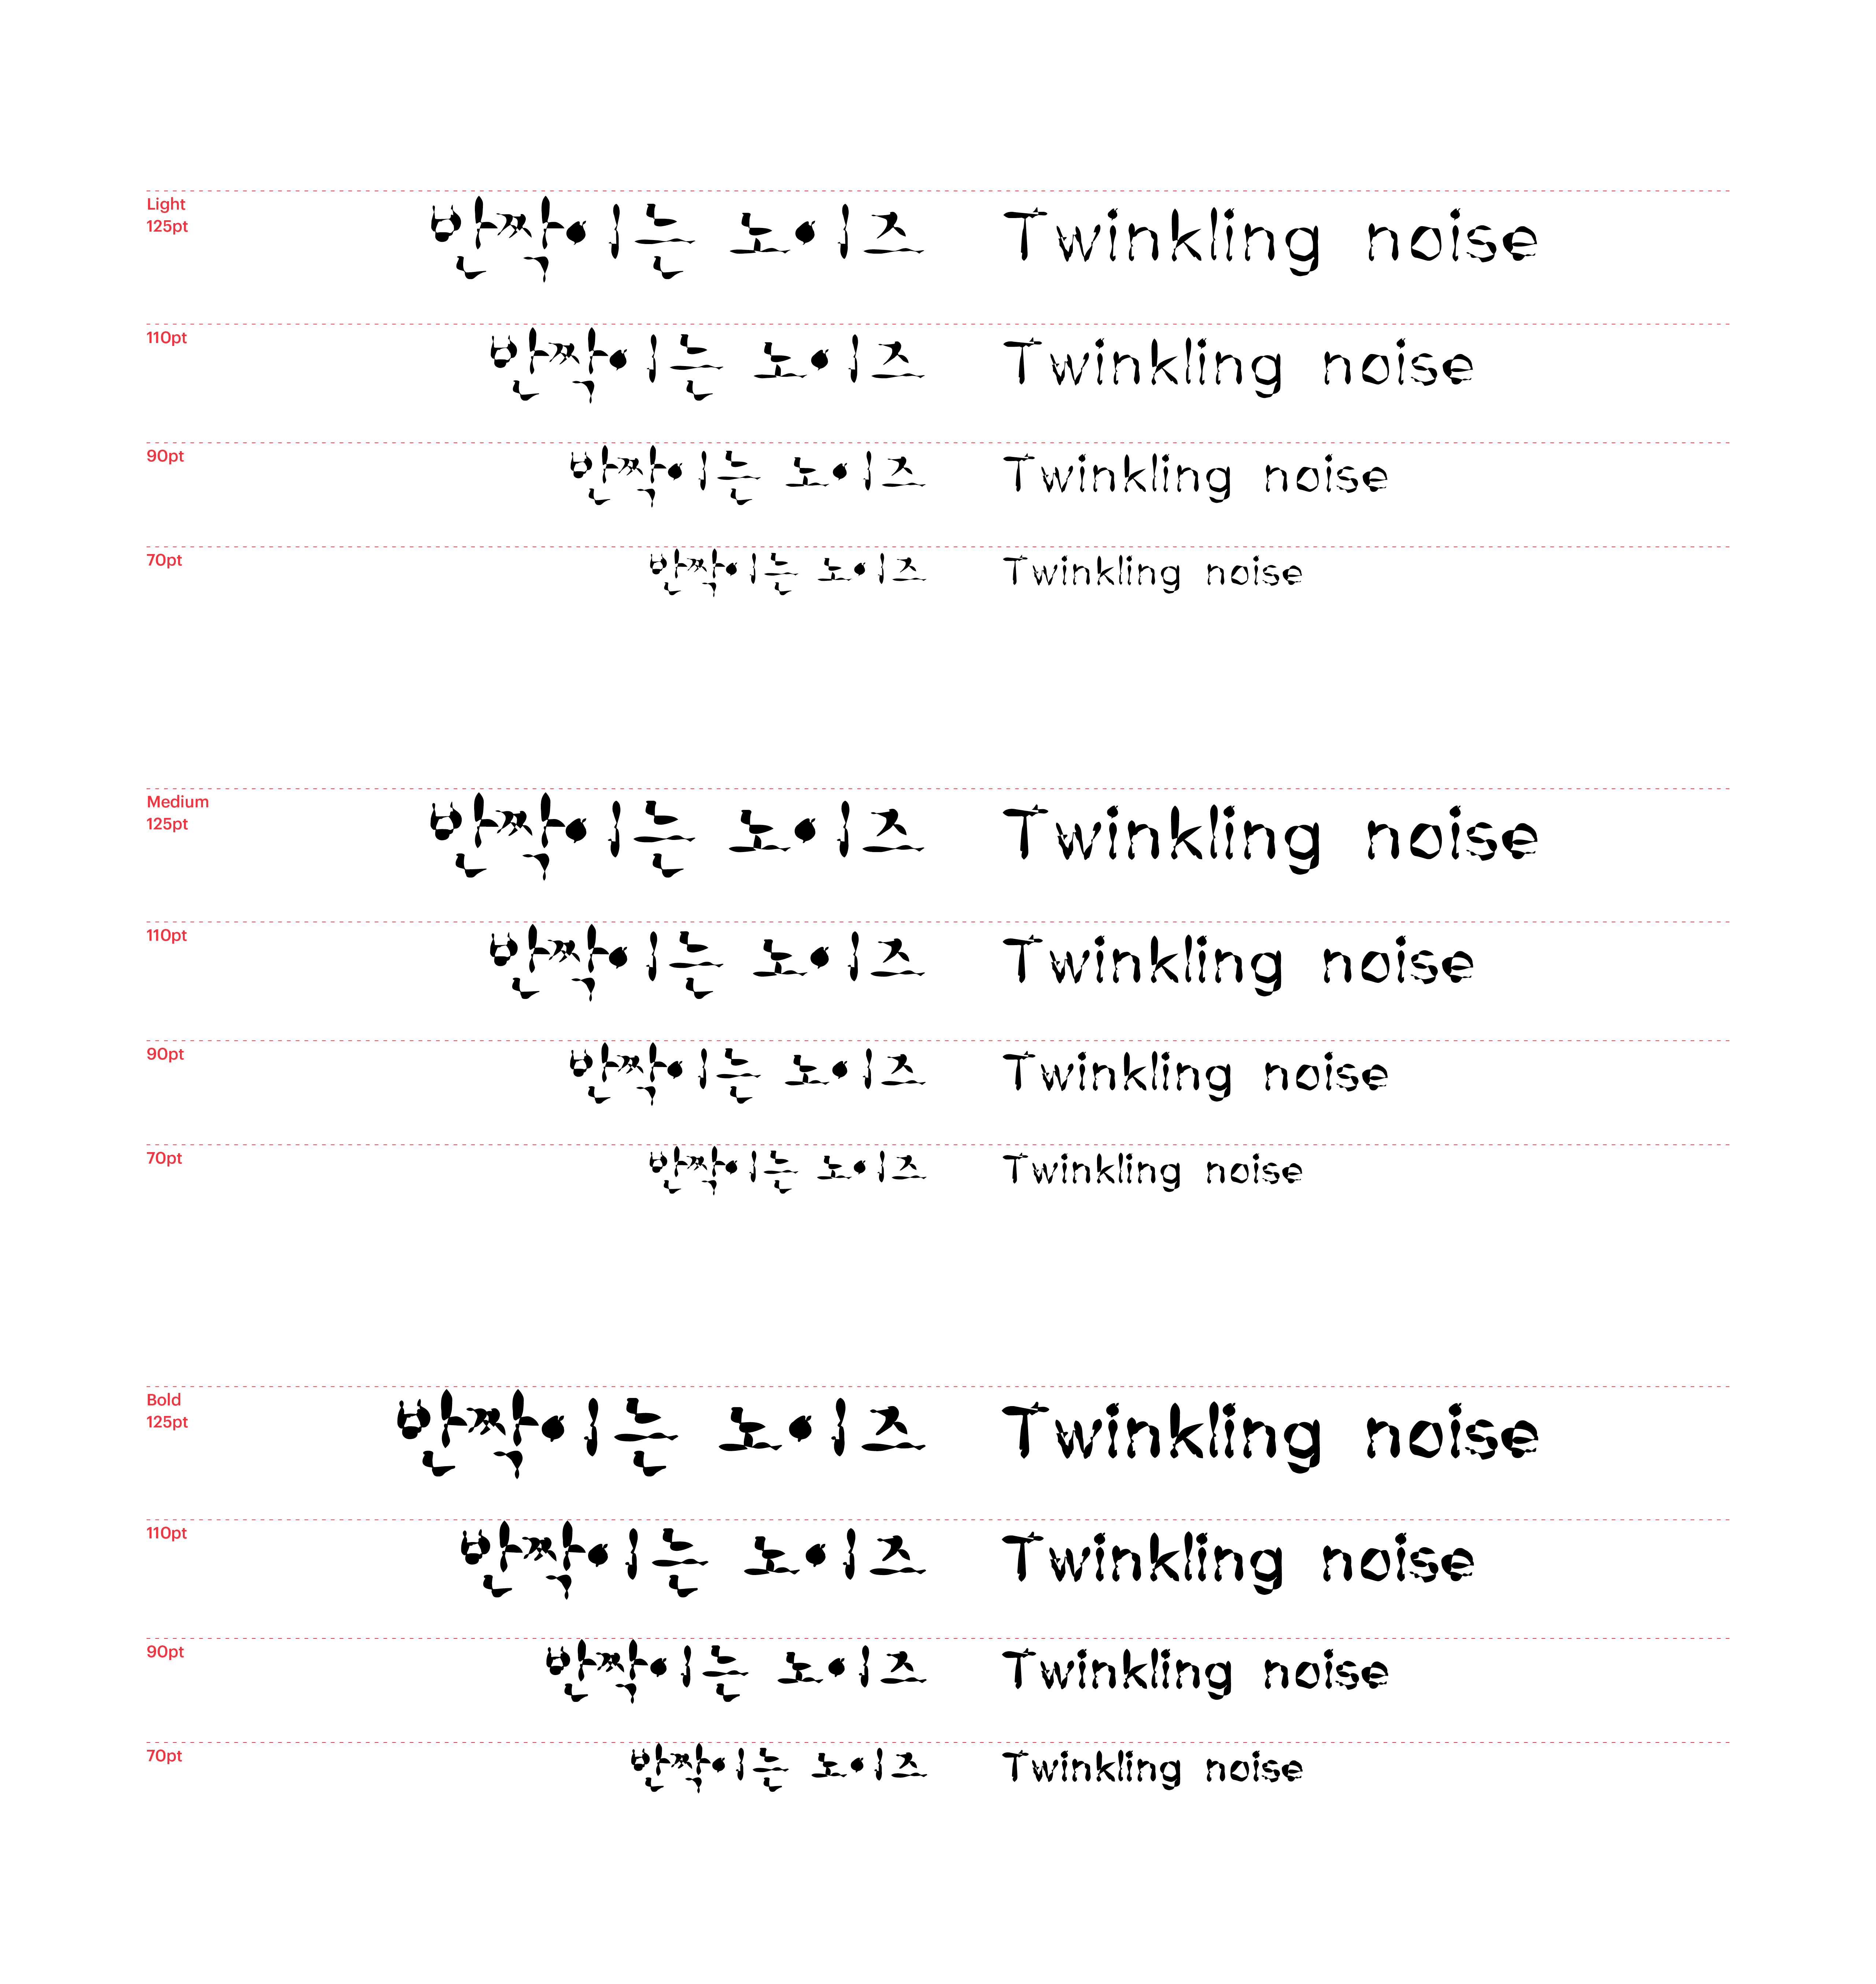 Light
125pt
반짝이는 노이즈 Twinkling noise
110pt
반짝이는 노이즈 Twinkling noise
90pt
반짝이는 노이즈 Twinkling noise
70pt
반짝이는 노이즈 Twinkling noise
Medium
125pt
반짝이는 노이즈 Twinkling noise
110pt
반짝이는 노이즈 Twinkling noise
90pt
반짝이는 노이즈 Twinkling noise
70pt
반짝이는 노이즈 Twinkling noise
Bold
125pt
반짝이는 노이즈 Twinkling noise
110pt
반짝이는 노이즈 Twinkling noise
90pt
반짝이는 노이즈 Twinkling noise
70pt
반짝이는 노이즈 Twinkling noise